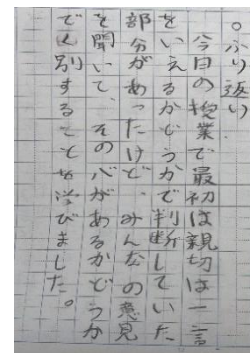 ○ふり返り
今日の授業で最初は親切は一言
をいえるかどうかで判断していた
部分があったけど、みんなの意見
を聞いて、その心があるかどうか
で区別することを学びました。